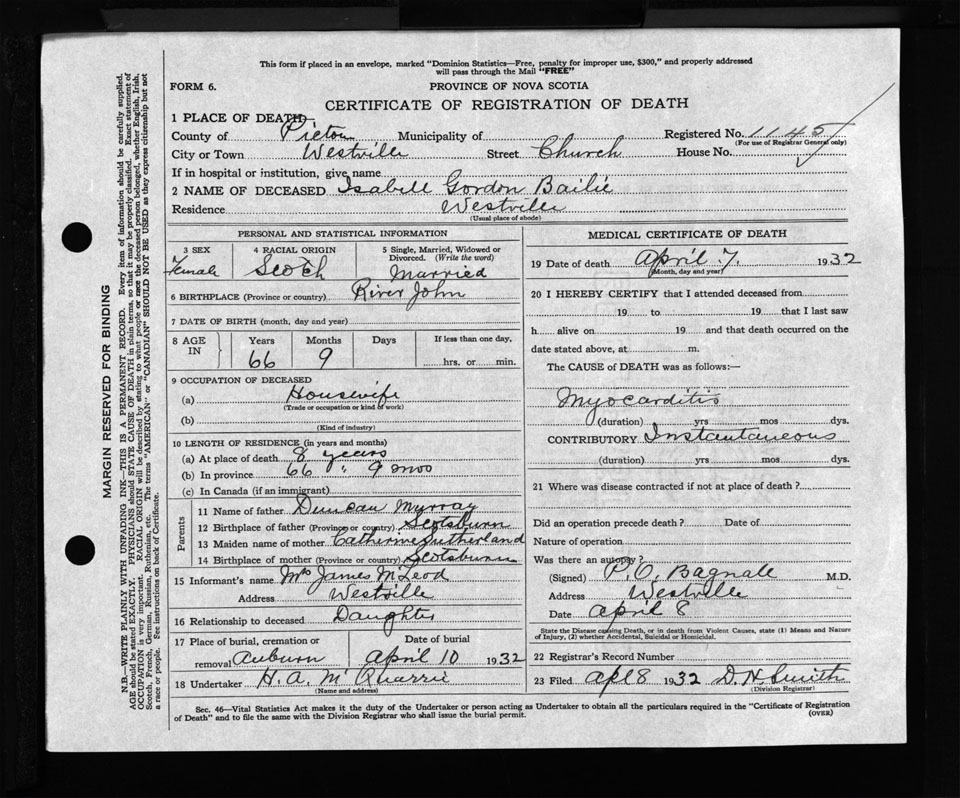 This form if placed in an envelope, marked "Dominion Statistics—Free, penalty for improper use, $300," and properly addressed
will pass through the Mail "FREE"
FORM 6. PROVINCE OF NOVA SCOTIA
CERTIFICATE OF REGISTRATION OF DEATH
1 PLACE OF DEATH
County of Pictou Municipality of Registered No. 1145
(For use of Registrar General only)
City or Town Westville Street Church House No.
If in hospital or institution, give name
2 NAME OF DECEASED Isabell Gordon Bailie
Residence Westville
(Usual place of abode)
PERSONAL AND STATISTICAL INFORMATION
3 SEX 4 RACIAL ORIGIN 5 Single, Married, Widowed or
Divorced. (Write the word)
Female Scotch Married
6 BIRTHPLACE (Province or country) River John
7 DATE OF BIRTH (month, day and year)
8 AGE IN Years Months Days If less than one day,
66 9 hrs. or min.
9 OCCUPATION OF DECEASED
(a) Housewife
(Trade or occupation or kind of work)
(b)
(Kind of industry)
10 LENGTH OF RESIDENCE (in years and months)
(a) At place of death 8 years
(b) In province 66 " 9 mos
(c) In Canada (if an immigrant)
Parents
11 Name of father Duncan Murray
12 Birthplace of father (Province or country) Scotsburn
13 Maiden name of mother Catherine Sutherland
14 Birthplace of mother (Province or country) Scotsburn
15 Informant's name Mrs James McLeod
Address Westville
16 Relationship to deceased Daughter
17 Place of burial, cremation or Date of burial
removal Auburn April 10 1932
18 Undertaker H. A. McQuarrie
(Name and address)
MEDICAL CERTIFICATE OF DEATH
19 Date of death April 7. 1932
(Month, day and year)
20 I HEREBY CERTIFY that I attended deceased from
19 to 19 that I last saw
h alive on 19 and that death occurred on the
date stated above, at m.
The CAUSE of DEATH was as follows:—
Myocarditis
(duration) yrs mos dys.
CONTRIBUTORY Instantaneous
(duration) yrs mos dys.
21 Where was disease contracted if not at place of death?
Did an operation precede death? Date of
Nature of operation
Was there an autopsy?
(Signed) P. O. Bagnall M.D.
Address Westville
Date April 8
State the Disease causing Death, or in death from Violent Causes, state (1) Means and Nature
of Injury, (2) whether Accidental, Suicidal or Homicidal.
22 Registrar's Record Number
23 Filed Apl 8 1932 D. H. Smith
(Division Registrar)
Sec. 46—Vital Statistics Act makes it the duty of the Undertaker or person acting as Undertaker to obtain all the particulars required in the "Certificate of Registration
of Death" and to file the same with the Division Registrar who shall issue the burial permit.
(OVER)
MARGIN RESERVED FOR BINDING
N.B.—WRITE PLAINLY WITH UNFADING INK—THIS IS A PERMANENT RECORD. Every item of information should be carefully supplied.
AGE should be stated EXACTLY. PHYSICIANS should STATE CAUSE OF DEATH in plain terms, so that it may be properly classified. Exact statement of
OCCUPATION is very important. RACIAL ORIGIN will be described by stating to what people or race the deceased person belonged, whether English, Irish,
Scotch, French, German, Russian, Ruthenian, etc. The terms "AMERICAN" or "CANADIAN" SHOULD NOT BE USED as they express citizenship but not
a race or people. See instructions on back of Certificate.